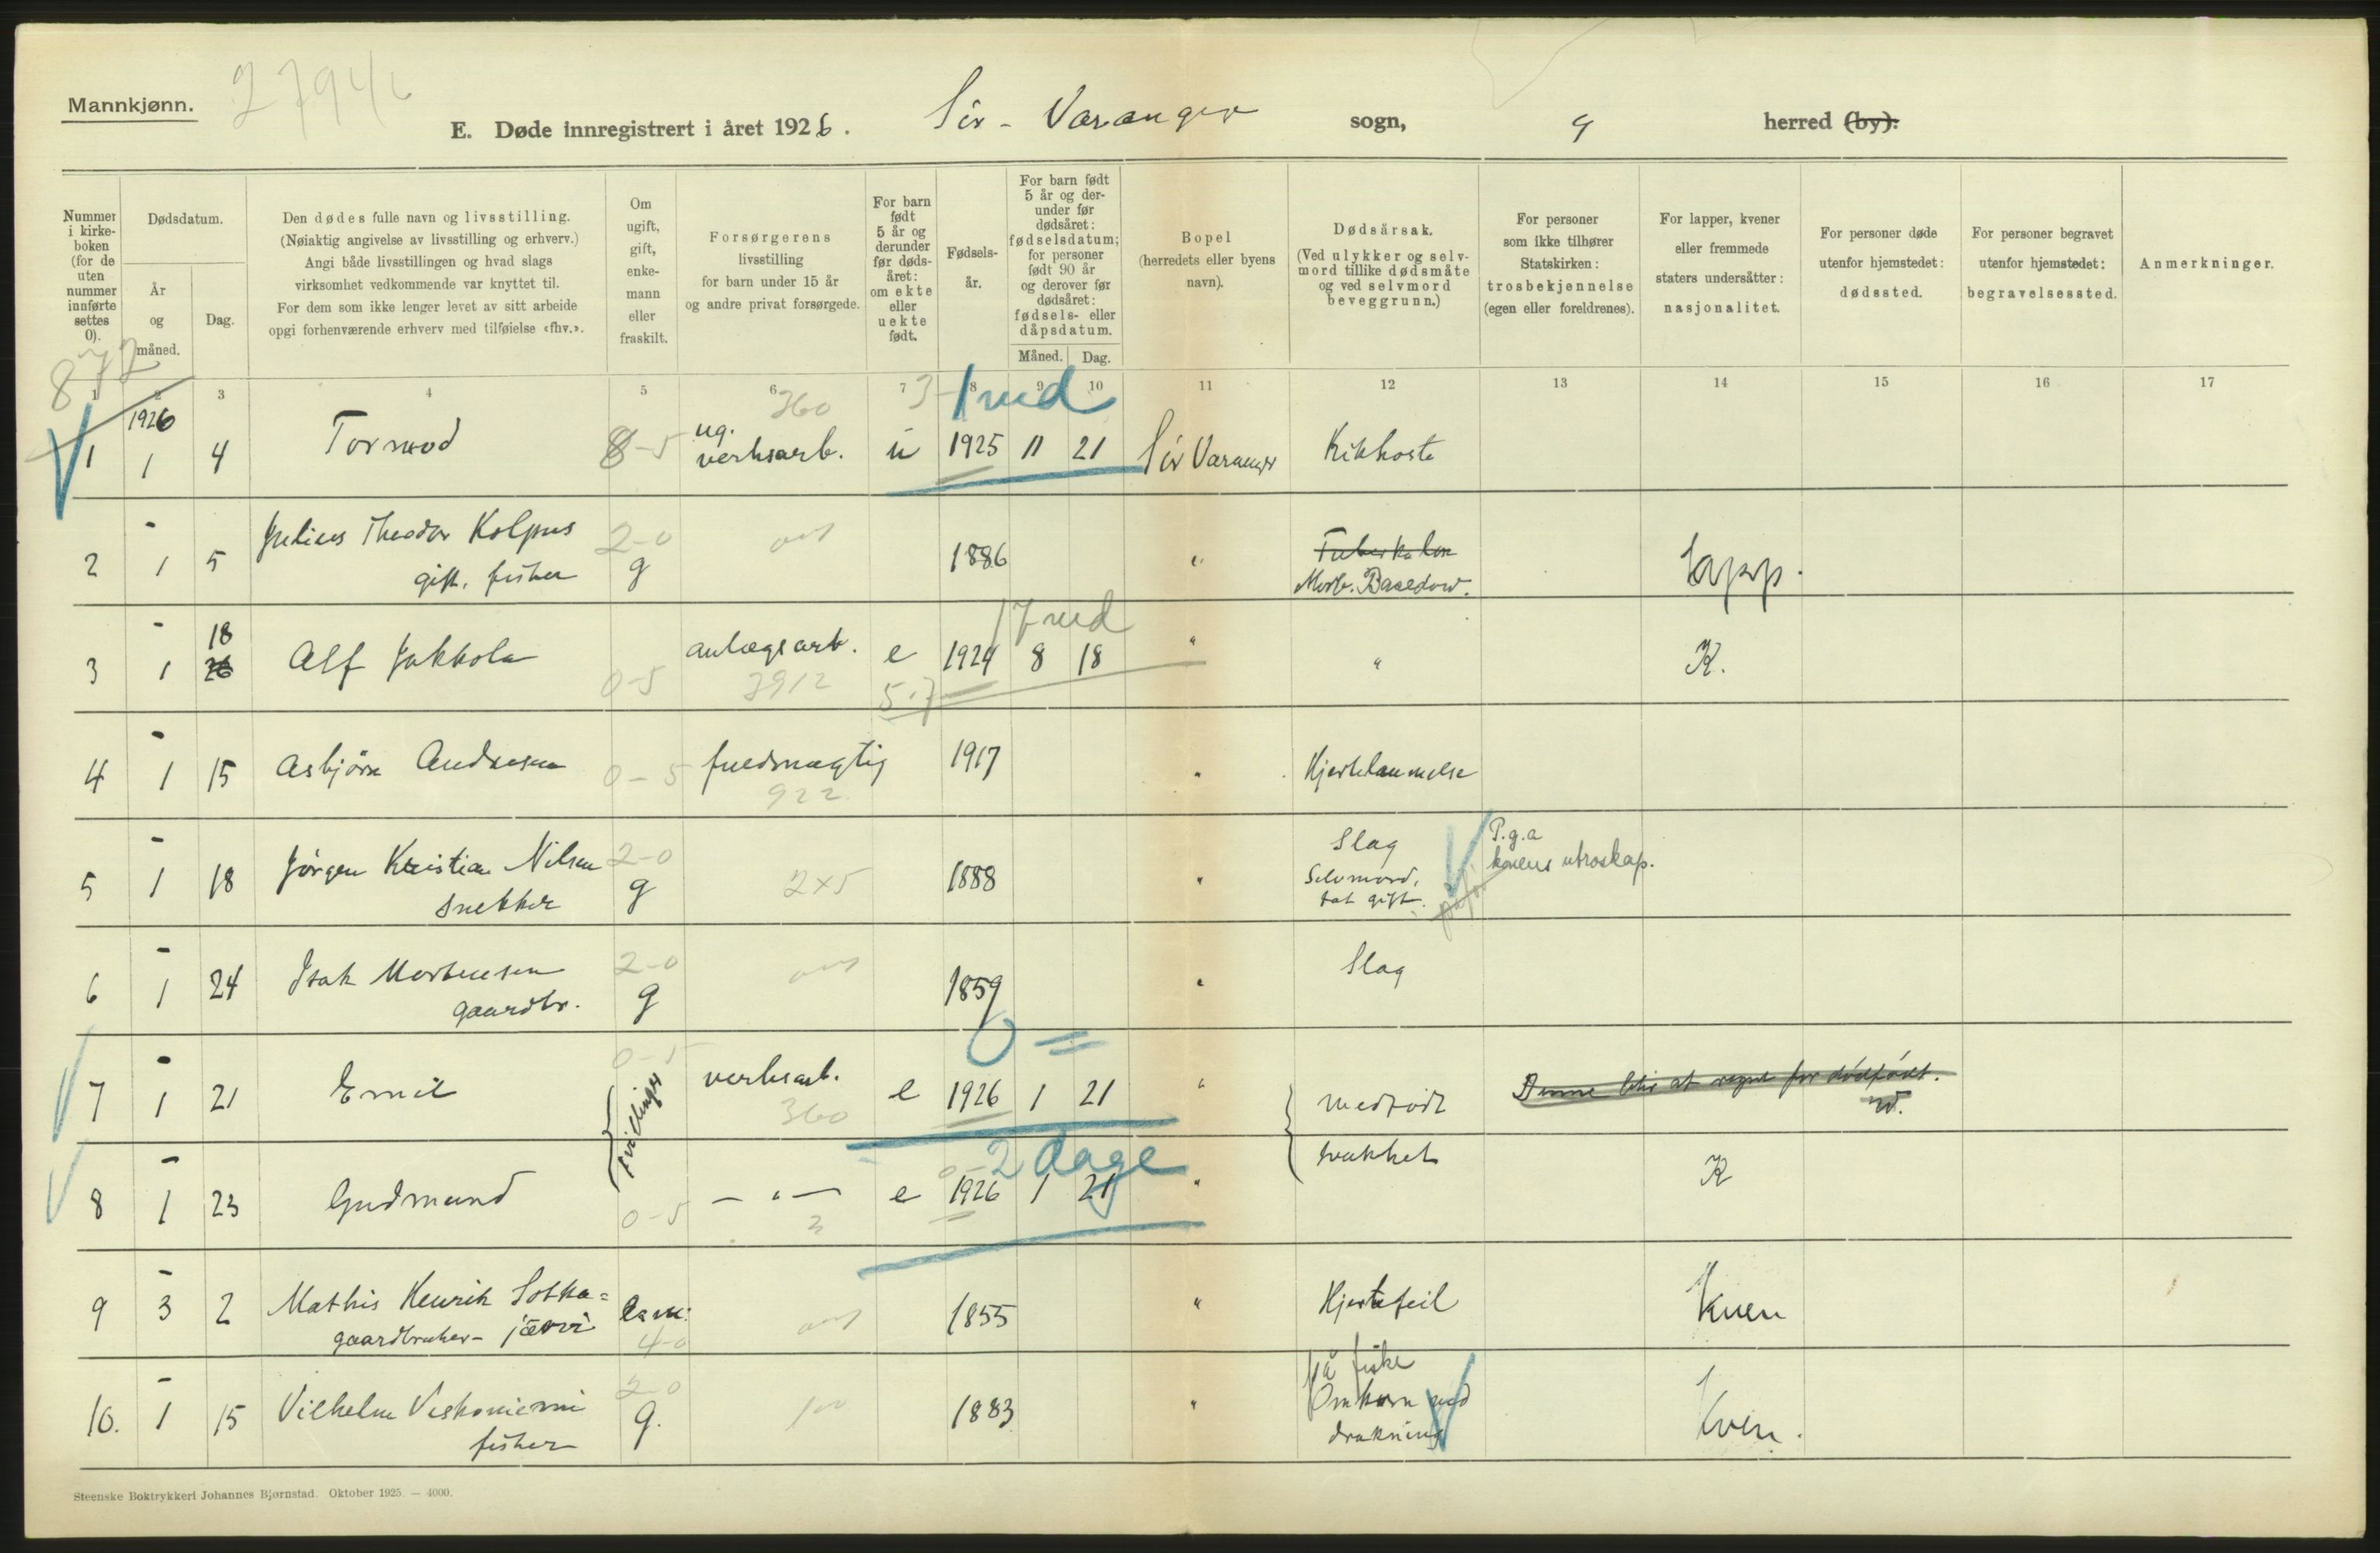 Mannkjønn.
27941
E. Døde innregistrert i året 1926. Sör-Varanger sogn, " herred (by).
Nummer i kirkeboken (for de uten nummer innførte settes 0).
Dødsdatum.
År og måned.
Dag.
Den dødes fulle navn og livsstilling.
(Nøiaktig angivelse av livsstilling og erhverv.)
Angi både livsstillingen og hvad slags
virksomhet vedkommende var knyttet til.
For dem som ikke lenger levet av sitt arbeide
opgi forhenværende erhverv med tilføielse «fhv.».
Om ugift, gift, enkemann eller fraskilt.
Forsørgerens
livsstilling
for barn under 15 år
og andre privat forsørgede.
For barn født 5 år og derunder før dødsåret: om ekte eller uekte født.
Fødselsår.
For barn født 5 år og derunder før dødsåret: fødselsdatum; for personer født 90 år og derover før dødsåret: fødsels- eller dåpsdatum.
Måned. Dag.
Bopel
(herredets eller byens
navn).
Dødsårsak.
(Ved ulykker og selvmord tillike dødsmåte og ved selvmord beveggrunn.)
For personer
som ikke tilhører
Statskirken:
trosbekjennelse
(egen eller foreldrenes).
For lapper, kvener
eller fremmede
staters undersåtter:
nasjonalitet.
For personer døde
utenfor hjemstedet:
dødssted.
For personer begravet
utenfor hjemstedet:
begravelsessted.
Anmerkninger.
872
1 2 3 4 5 6 7 8 9 10 11 12 13 14 15 16 17
360 3 1 md
1 1926 1 4 Tormod 8-5 ug. verksarb. u 1925 11 21 Sör Varanger Kikhoste
2 - 1 5 Julius Theodor Kolpus 2-0 1886 " Tuberkulose
gift, fisker g Morb. Basedow. Lapp.
17 md
3 - 1 18 26 Alf Jakkola 0-5 anlægsarb. e 1924 8 18 " " K.
3912 5.7
4 - 1 15 Asbjörn Andresen 0-5 fuldmægtig 1917 " Hjertelammelse
922
5 - 1 18 Jörgen Kristian Nilsen 2-0 2x5 1888 " Slag P.g.a
snekker g Selvmord, konens utroskap.
tat gift.
6 - 1 24 Isak Mortensen 2-0 1859 " Slag
gaardbr. g
0 =
7 - 1 21 Emil 0-5 tvillinger verksarb. e 1926 1 21 " medfödt
360 Denne blir at regne for dödfödt.
2 dage
8 - 1 23 Gudmund 0-5 - " - e 1926 1 21 " svakhet K
3
9 - 3 2 Mathis Henrik Sotka= enkem. 1855 " Hjertefeil Kven
gaardbruker- jærvi 4-0
10. - 1 15 Vilhelm Veskoniemi 2-0 1883 " På fiske
fisker g. Omkom ved Kven.
drukning
Steenske Boktrykkeri Johannes Bjørnstad. Oktober 1925. — 4000.